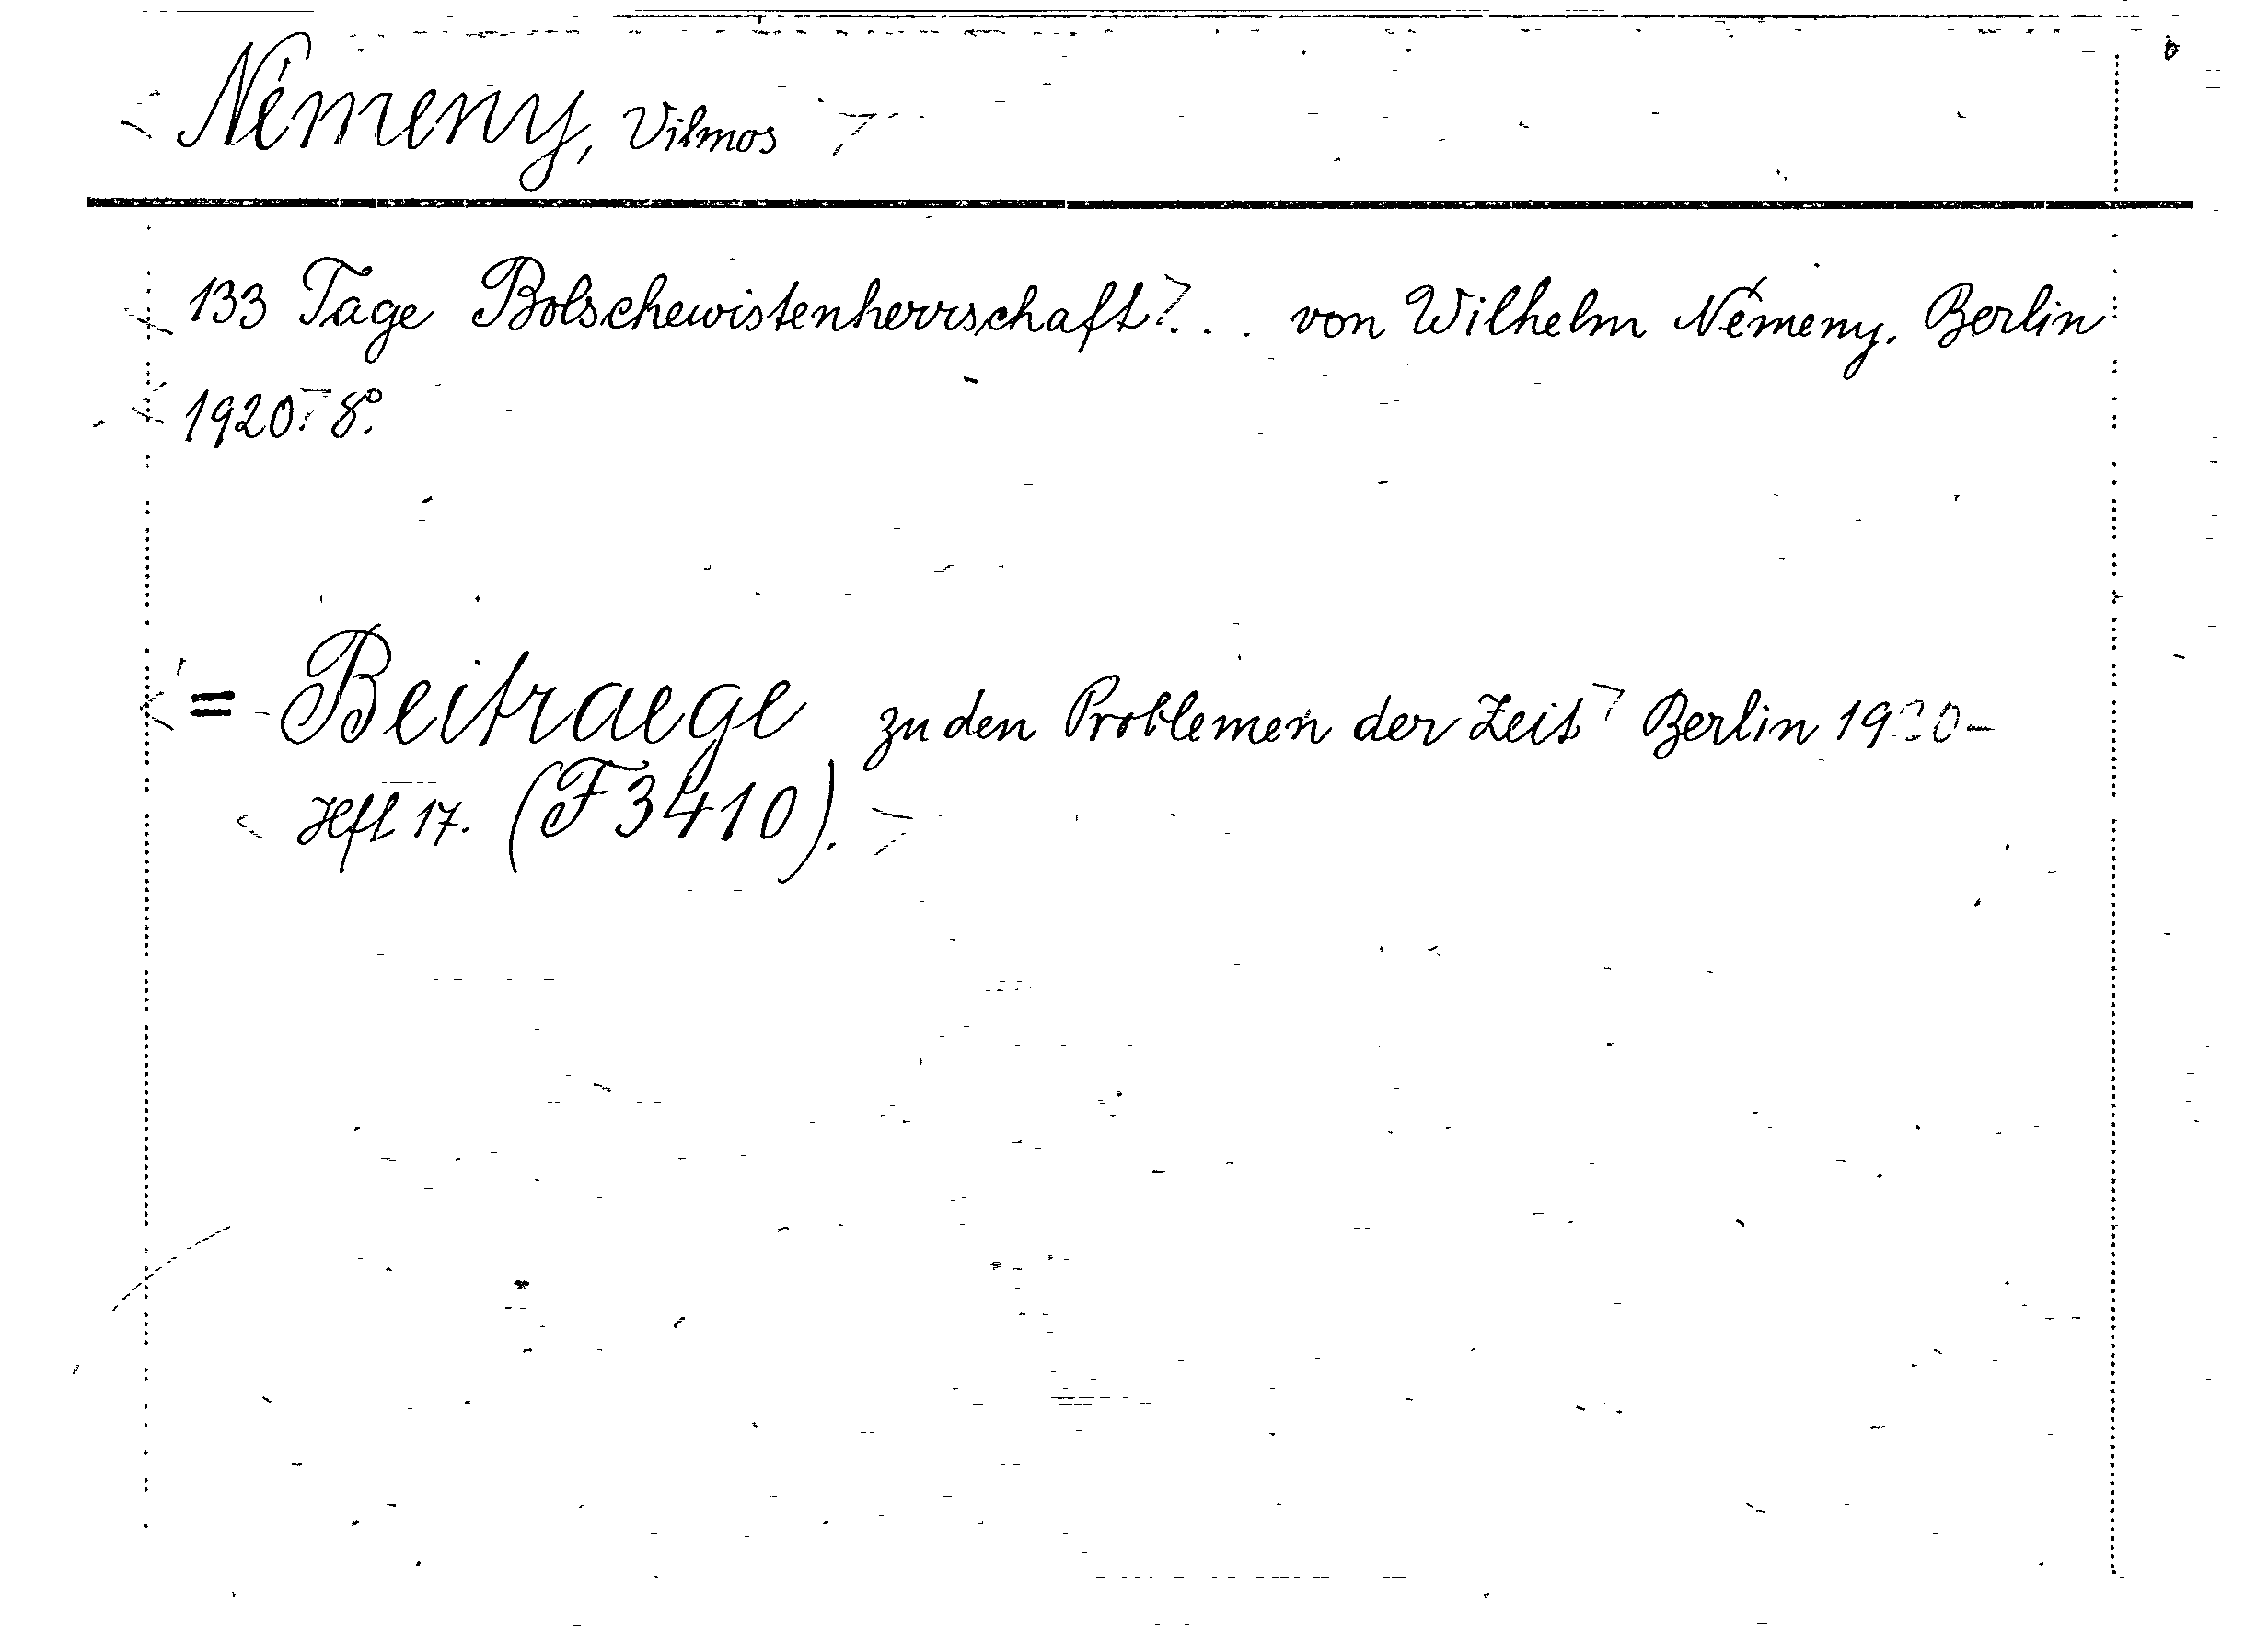 Némeny, Vilmos
133 Tage Bolschewistenherrschaft... von Wilhelm Némeny. Berlin
1920. 8°.
= Beitraege zu den Problemen der Zeit Berlin 1920-
Hft 17. (F 3410).